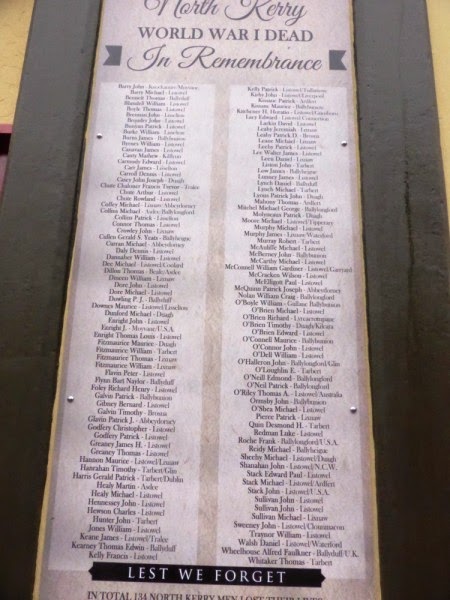 North Kerry
WORLD WAR I DEAD
In Remembrance
Barry John - Knockanure/Moyvane
Barry Michael - Listowel
Bennett Thomas - Ballyduff
Blundell William - Listowel
Boyle Thomas - Listowel
Brosnan John - Lisselton
Broder John - Listowel
Bunyan Patrick - Listowel
Burke William - Lisselton
Burns James - Ballybunion
Byrnes William - Listowel
James - Listowel
Canty Mathew - Kilflynn
Carmody Edward - Listowel
Carr James - Lisselton
Carroll Dennis - Listowel
Casey John Joseph - Duagh
Chute Chaloner Francis Trevor - Tralee
Chute Arthur - Listowel
Chute Rowland - Listowel
Coffey Michael - Lixnaw/Abbeydorney
Collins Michael - Asdee/Ballylongford
Collins Patrick - Lisselton
Connor Thomas - Listowel
Crowley John - Lixnaw
Cullen Gerald S. Yeats - Ballyheigue
Curran Michael - Abbeydorney
Daly Dennis - Listowel
Dannaher William - Listowel
Dee Michael - Listowel/Gosford
Dillon Thomas - Beale/Asdee
Dineen William - Lixnaw
Dore John - Listowel
Dore Michael - Listowel
Dowling P. J. - Ballyduff
Downes Maurice - Listowel/Lisselton
Dunford Michael - Duagh
Enright John - Listowel
Enright J. - Moyvane/U.S.A
Enright Thomas Louis - Listowel
Fitzmaurice Maurice - Duagh
Fitzmaurice William - Tarbert
Fitzmaurice Thomas - Lixnaw
Fitzmaurice William - Lixnaw
Flavin Peter - Listowel
Flynn Bart Naylor - Ballyduff
Foley Richard Henry - Listowel
Galvin Patrick - Ballybunion
Gibney Bernard - Listowel
Galvin Timothy - Brosna
Glavin Patrick J. - Abbeydorney
Godfrey Christopher - Listowel
Godfrey Patrick - Listowel
Greaney James H. - Listowel
Greaney Thomas - Listowel
Hannon Maurice - Listowel/Lixnaw
Hanrahan Timothy - Tarbert/Glin
Harris Gerald Patrick - Tarbert/Dublin
Healy Martin - Asdee
Healy Michael - Listowel
Hennessy John - Listowel
Hewson Charles - Listowel
Hunter John - Tarbert
Jones William - Listowel
Keane James - Listowel/Tralee
Kearney Thomas Edwin - Ballyduff
Kelly Francis - Listowel
Kelly Patrick - Listowel/Tullamore
Kirby John - Listowel/Liverpool
Kissane Patrick - Ardfert
Kissane Maurice - Ballybunion
Kitchener H. Horatio - Listowel/Gunsborough
Lacy Edward - Listowel Connection
Larkin David - Listowel
Leahy Jeremiah - Lixnaw
Leahy Patrick D. - Brown
Leane Michael - Lixnaw
Leehy Patrick - Listowel
Lee Walter James - Listowel
Leen Daniel - Lixnaw
Liston John - Tarbert
Low James - Ballyheigue
Lunney James - Listowel
Lynch Daniel - Ballyduff
Lynch Michael - Tarbert
Lyons Patrick John - Duagh
Mahony Thomas - Asdee
Mitchel Michael George - Ballylongford
Molyneaux Patrick - Duagh
Moore Michael - Listowel/Tipperary
Murphy Michael - Listowel
Murphy James - Lixnaw/Waterford
Murray Robert - Tarbert
McAuliffe Michael - Listowel
McBerney John - Ballybunion
McCarthy Michael - Listowel
McConnell William Gardiner - Listowel/Garryard
McCracken Wilson - Listowel
McElligott Paul - Listowel
McQuinn Patrick Joseph - Abbeydorney
Nolan William Craig - Ballylongford
O'Boyle William - Gullane Ballybunion
O'Brien Michael - Listowel
O'Brien Richard - Lyreacrompane
O'Brien Timothy - Duagh/Kilosta
O'Brien Edward - Listowel
O'Connell Maurice - Ballybunion
O'Connor John - Listowel
O'Dell William - Listowel
O'Halleron John - Ballylongford/Glin
O'Loughlin E. - Tarbert
O'Neill Edmond - Ballylongford
O'Neil Patrick - Ballylongford
O'Riley Thomas A. - Listowel/Australia
Ormsby John - Ballybunion
O'Shea Michael - Listowel
Pierce Patrick - Lixnaw
Quin Desmond H. - Tarbert
Redman Luke - Listowel
Roche Frank - Ballylongford/U.S.A
Reidy Michael - Ballyheigue
Sheehy Michael - Listowel/Duagh
Shanahan John - Listowel/N.C.W.
Stack Edward Paul - Listowel
Stack Michael - Listowel/Ardfert
Stack John - Listowel/U.S.A.
Sullivan John - Listowel
Sullivan John - Listowel
Sullivan Michael - Lixnaw
Sweeney John - Listowel/Clounmacon
Traynor William - Listowel
Walsh Daniel - Listowel/Waterford
Wheelhouse Alfred Faulkner - Ballyduff/U.K.
Whitaker Thomas - Tarbert
LEST WE FORGET
IN TOTAL 134 NORTH KERRY MEN LOST THEIR LIVES